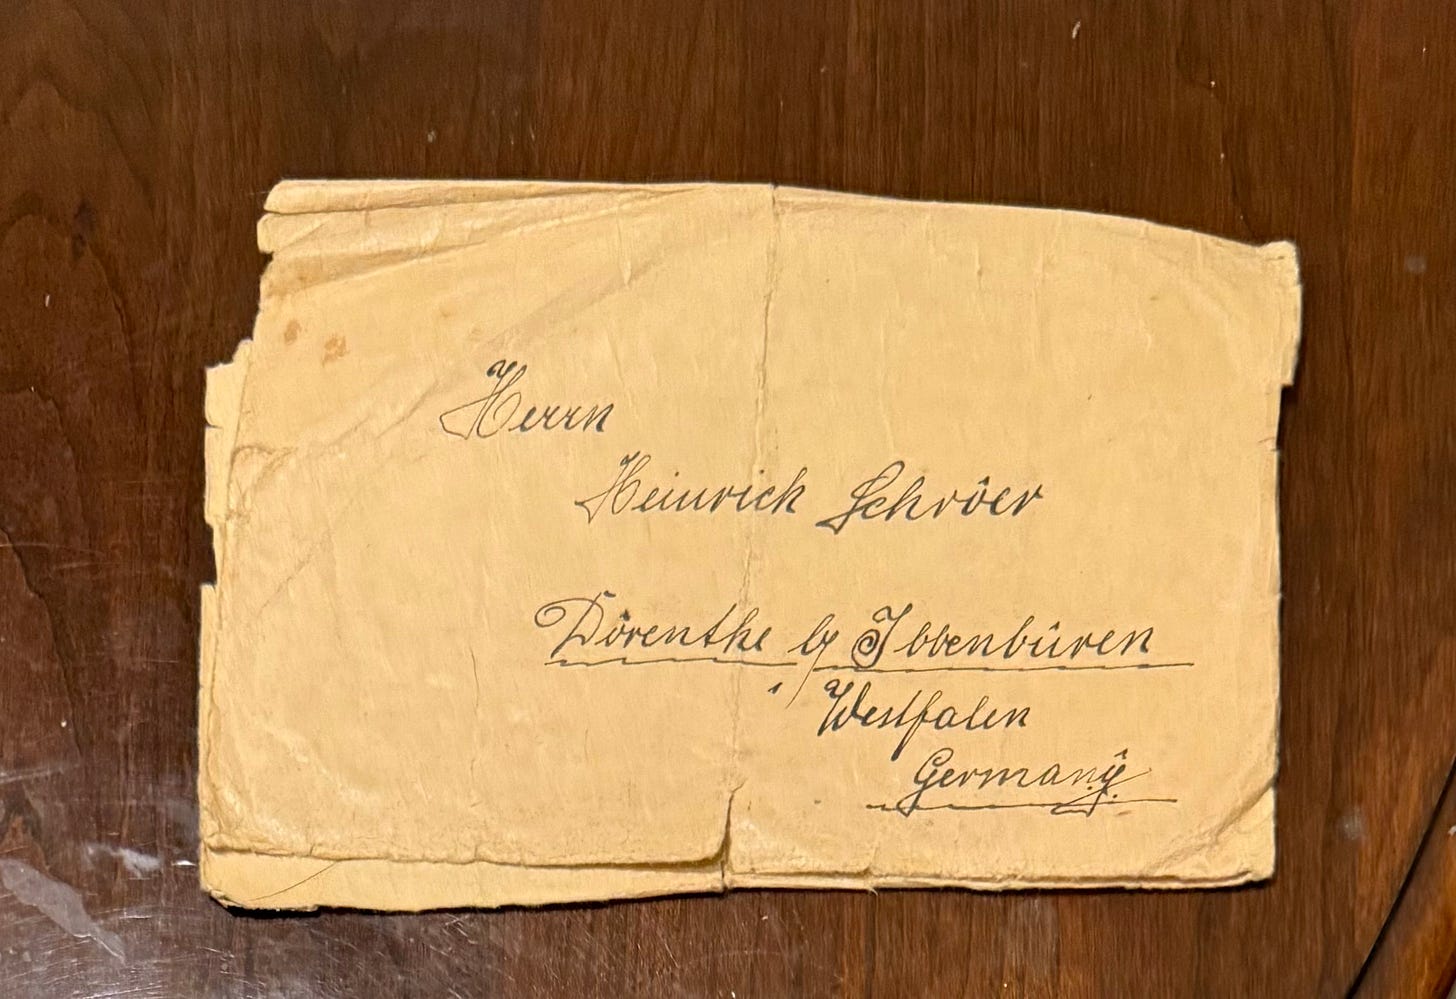 Herrn
Heinrich Schröer
Dörenthe b/ Ibbenbüren
i/ Westfalen
Germany